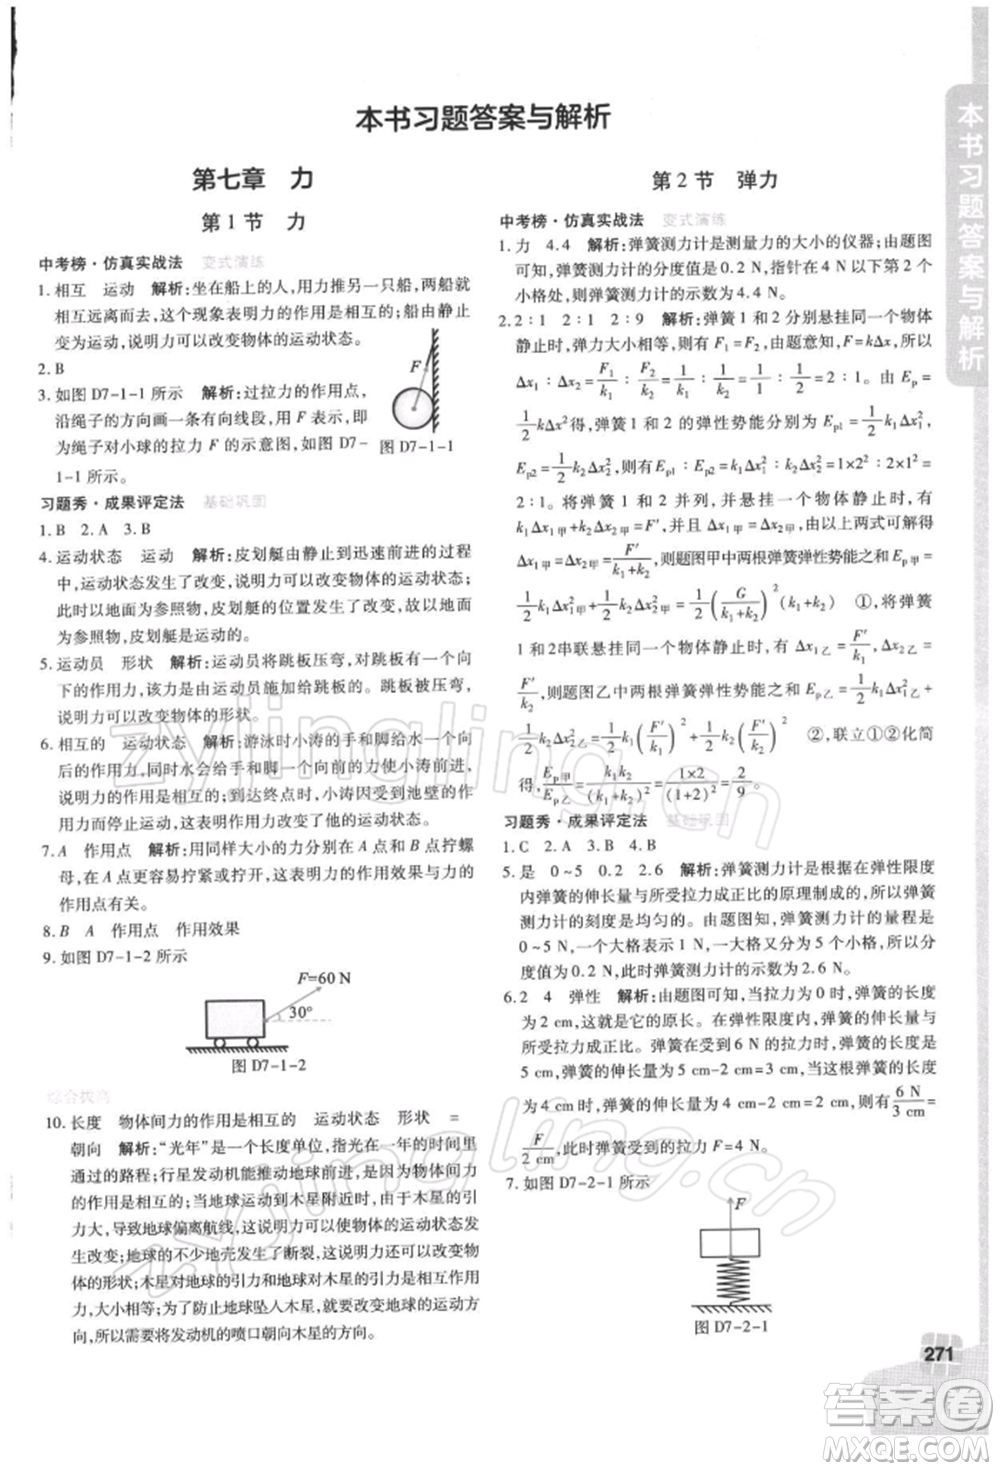 本书习题答案与解析
第七章 力
第1节 力
中考榜·仿真实战法 变式演练
1.相互 运动 解析:坐在船上的人,用力推另一只船,两船
相互远离而去,这个现象表明力的作用是相互的;船由静止
变为运动,说明力可以改变物体的运动状态。
2.B
3.如图 D7-1-1 所示 解析:过拉力的作用点,
沿绳子的方向画一条有向线段,用 F 表示,即
为绳子对小球的拉力 F 的示意图,如图 D7-
1-1 所示。
F
图 D7-1-1
习题秀·成果评定法 基础巩固
1.B 2.A 3.B
4.运动状态 运动 解析:皮划艇由静止到迅速前进的过程
中,运动状态发生了改变,说明力可以改变物体的运动状态;
此时以地面为参照物,皮划艇的位置发生了改变,故以地面
为参照物,皮划艇是运动的。
5.运动员 形状 解析:运动员将跳板压弯,跳板受到一个向
下的作用力,该力是由运动员施加给跳板的,跳板被压弯,
说明力可以改变物体的形状。
6.相互的 运动状态 解析:游泳时小涛的手和脚给水一个向
后的作用力,同时水会给手和脚一个向前的力使小涛前进,
说明力的作用是相互的;到达终点时,小涛因受池壁的作
用力而停止运动,这表明力的作用可以改变物体的运动状态。
7.A 作用点 解析:用同样大小的力分别在A点和B点拧螺
母,在A点比B点更容易拧紧或拧松,说明力的作用效果与
力的作用点有关。
8.B A 作用点 作用效果
9.如图 D7-1-2 所示
F=60 N
30°
图 D7-1-2
综合拔高
10.长度 物体间力的作用是相互的 运动状态 形状 =
朝向 解析:“光年”是一个长度单位,指光在一年的时间里
通过的路程;行星发动机能推动地球前进,说明物体间力
的作用是相互的;当地球运动到木星附近时,由于木星的引
力大,导致地球偏离航线,这说明力可以使物体的运动状态发
生改变;地球的不少地壳发生了断裂,说明力可以改变物体
的形状;木星对地球的引力和地球对木星的引力是相互作用
力,大小相等;为了防止地球坠入木星,就要改变地球的运动方
向,所以需要将发动机的喷口朝向木星的方向。
第2节 弹力
中考榜·仿真实战法 变式演练
1.力 4.4 解析:弹簧测力计是测量力的大小的仪器;由题图
可知,弹簧测力计的分度值是 0.2 N,指针在 4 N 以下第 2 个
小格处,所以弹簧测力计的示数为 4.4 N。
2.2∶1 2∶1 2∶9 解析:弹簧 1 和 2 分别悬挂同一个物体
静止时,弹力大小相等,即 F₁=F₂=G,由题意知,F=kΔx,所以
Δx₁∶Δx₂=F₁/k₁∶F₂/k₂=1/k₁∶1/k₂=1/1∶1/2=2∶1。由 Eₚ=
1/2kΔx²得,弹簧 1 和 2 的弹性势能分别为 Eₚ₁=1/2k₁Δx₁²,
Eₚ₂=1/2k₂Δx₂²,所以 Eₚ₁∶Eₚ₂=k₁Δx₁²∶k₂Δx₂²=(1×2²)∶(2×1²)=
2∶1。将弹簧 1 和 2 并列悬挂一个物体静止时,有
k₁Δx₁甲+k₂Δx₂甲=F′,并且 Δx₁甲=Δx₂甲,由以上两式可解得
Δx₁甲=Δx₂甲=F′/(k₁+k₂),则题图甲中两根弹簧弹性势能之和 Eₚ甲=
1/2k₁Δx₁甲²+1/2k₂Δx₂甲²=1/2(G/(k₁+k₂))²(k₁+k₂) ①,将弹簧
1 和 2串联悬挂同一个物体静止时,Δx₁乙=F′/k₁,Δx₂乙=
F′/k₂,则题图乙中两根弹簧弹性势能之和 Eₚ乙=1/2k₁Δx₁乙²+
1/2k₂Δx₂乙²=1/2k₁(F′/k₁)²+1/2k₂(F′/k₂)² ②,联立①②化简
得,Eₚ甲/Eₚ乙=k₁k₂/(k₁+k₂)²=(1×2)/(1+2)²=2/9。
习题秀·成果评定法 基础巩固
1.C 2.A 3.B 4.B
5.是 0~5 0.2 2.6 解析:弹簧测力计是根据在弹性限度
内弹簧的伸长量与所受拉力成正比的原理制成的,所以弹簧
测力计的刻度是均匀的。由题图知,弹簧测力计的量程为
0~5 N,一个大格表示 1 N,一个大格分为 5 个小格,所以分
度值为 0.2 N,此时弹簧测力计的示数为 2.6 N。
6.2 4 弹性 解析:由题图可知,当拉力为 0 时,弹簧的长度
为 2 cm,这就是它的原长。在弹性限度内,弹簧的伸长量与
所受拉力成正比。弹簧受到 6 N 的拉力时,弹簧的伸长量为
5 cm-2 cm=3 cm。当弹簧的长度为 4 cm 时,由题意可
知,弹簧的伸长量为 4 cm-2 cm=2 cm,则有 6 N/3 cm=
F/2 cm,此时弹簧受到的拉力 F=4 N。
7.如图 D7-2-1 所示
F
图 D7-2-1
本书习题答案与解析
271
答案圈
MXQE.COM
zyjingling.cn
zyjingling.cn